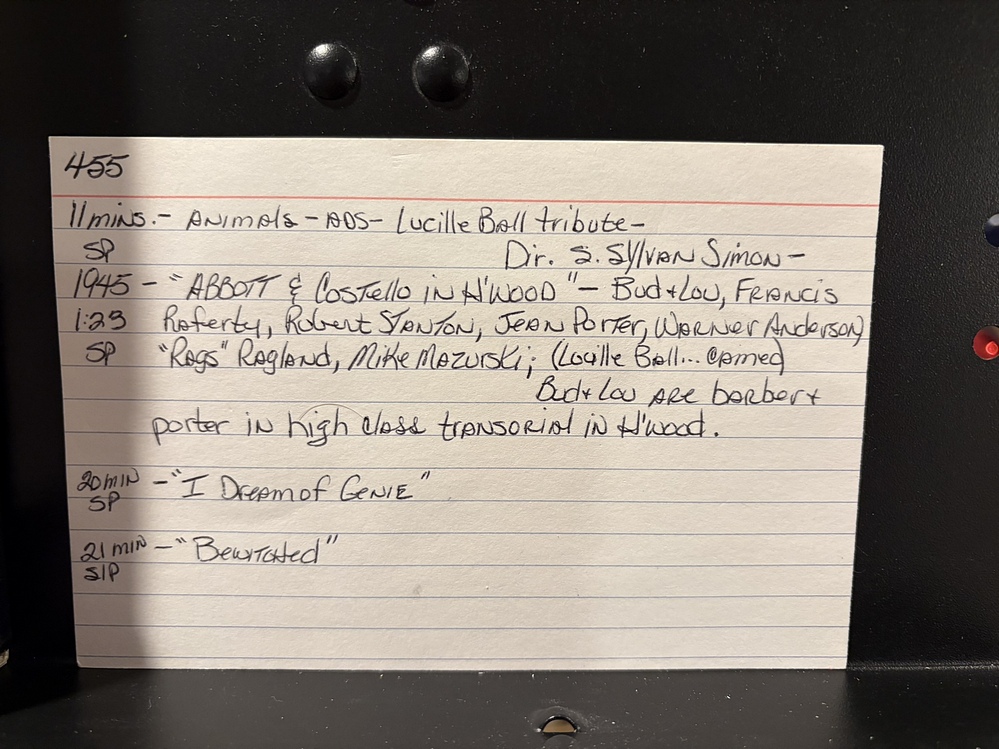 455
11 mins. - ANIMALS - ADS - Lucille Ball tribute -
SP Dir. S. SYLVAN SIMON -
1945 - "ABBOTT & COSTello IN H'WOOD" - Bud + Lou, FRANCIS
1:23 Raferty, Robert STANTON, JEAN PORTER, WARNER Anderson,
SP "Rags" RAGLAND, MIKE MAZURSKI; (Lucille Ball... Cameo)
Bud + Lou ARE barber +
porter in high class TRANSORIAl IN H'wood.
20 MIN - "I Dream of GENIE"
SP
21 MIN - "BEWITCHED"
SIP